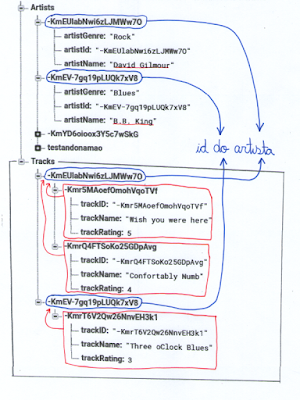 Artists
-KmEUlabNwi6zLJMWw7O
artistGenre: "Rock"
artistId: "-KmEUlabNwi6zLJMWw7O"
artistName: "David Gilmour"
-KmEV-7gq19pLUQk7xV8
artistGenre: "Blues"
artistId: "-KmEV-7gq19pLUQk7xV8"
artistName: "B.B. King"
-KmYD6oioox3Y5c7wSkG
testandonamao
id do artista
Tracks
-KmEUlabNwi6zLJMWw7O
-Kmr5MAoefOmohVqoTVf
trackID: "-Kmr5MAoefOmohVqoTVf"
trackName: "Wish you were here"
trackRating: 5
-KmrQ4FTSoKo25GDpAvg
trackID: "-KmrQ4FTSoKo25GDpAvg"
trackName: "Confortably Numb"
trackRating: 4
-KmEV-7gq19pLUQk7xV8
-KmrT6V2Qw26NnvEH3k1
trackID: "-KmrT6V2Qw26NnvEH3k1"
trackName: "Three oClock Blues"
trackRating: 3